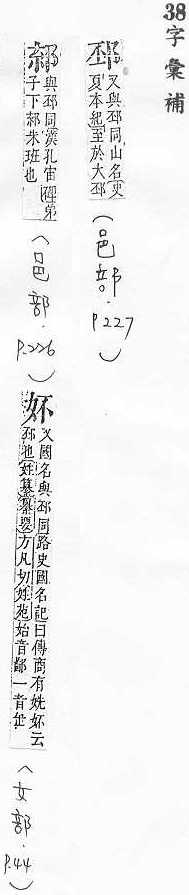 38字彙補
又與邳同山名史
夏本紀至於大邳
(邑部. P.227)
與邳同漢孔宙碑弟
子下邳朱班也
(邑部. P.226)
妚
又國名與邳同路史國名記曰傳商有姺妚云
邳也姓纂纂要方凡切姓苑始音鄙一音
(女部. P.44)